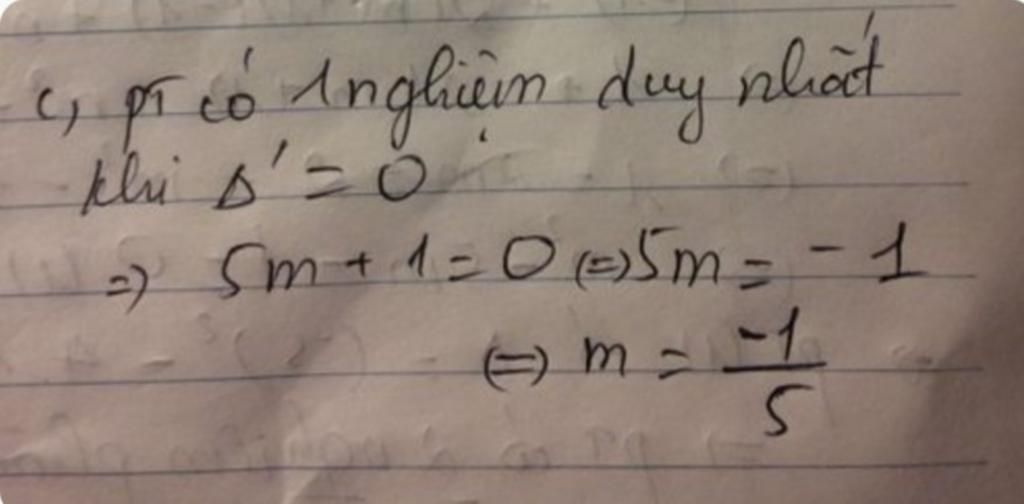 c, pt có 1 nghiệm duy nhất
khi Δ' = 0
=> 5m + 1 = 0 (=) 5m = - 1
(=) m = -1/5